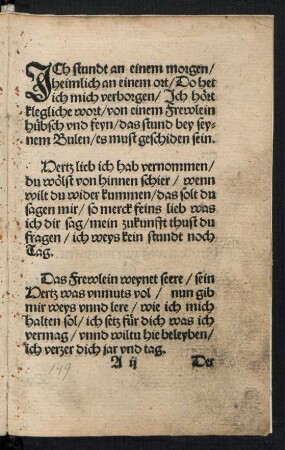 ICh stundt an einem morgen/
heimlich an einem ort/ Do het
ich mich verborgen/ Ich hört
klegliche wort/ von einem Frewlein
hübsch vnd feyn/ das stund bey sey-
nem Bulen/ es must geschiden sein.
Hertz lieb ich hab vernommen/
du wölst von hinnen schier/ wenn
wilt du wider kummen/ das solt du
sagen mir/ so merck feins lieb was
ich dir sag/ mein zukunfft thust du
fragen/ ich weys kein stundt noch
Tag.
Das Frewlein weynet seere/ sein
Hertz was vnmuts vol/ nun gib
mir weys vnnd lere/ wie ich mich
halten sol/ ich setz für dich was ich
vermag/ vnnd wiltu hie beleyben/
ich verzer dich jar vnd tag.
A ij Der
149